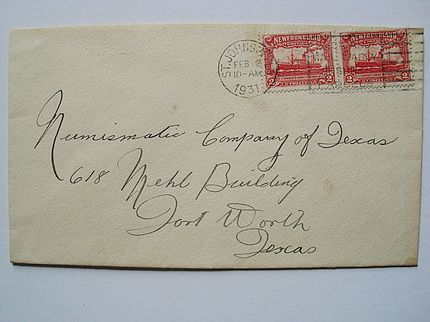 ST. JOHN'S
FEB 2
10-AM
1931
NEWFOUNDLAND
2 2
NEWFOUNDLAND
2 2
Numismatic Company of Texas
618 Mehl Building
Fort Worth
Texas